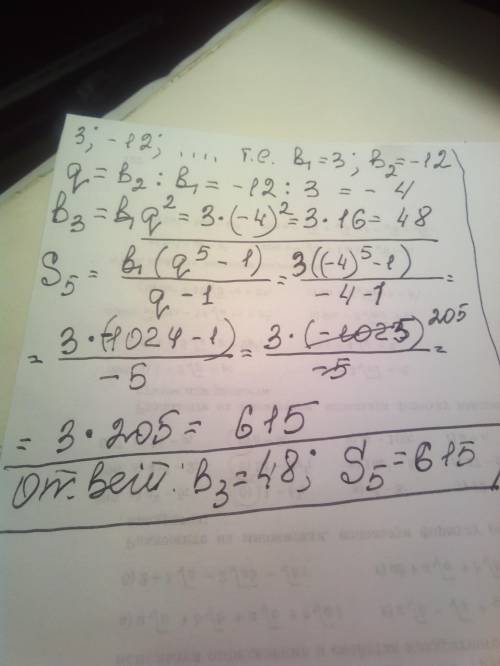 3; -12; .... т.е. в₁=3; в₂=-12
q= в₂ : в₁ = -12 : 3 = -4
в₃ = в₁q² = 3·(-4)² = 3·16 = 48
S₅ = в₁(q⁵-1)/q-1 = 3((-4)⁵-1)/-4-1 =
= 3·(-1024-1)/-5 = 3·(-1025)/-5 205 =
= 3·205 = 615
Ответ: в₃=48; S₅=615